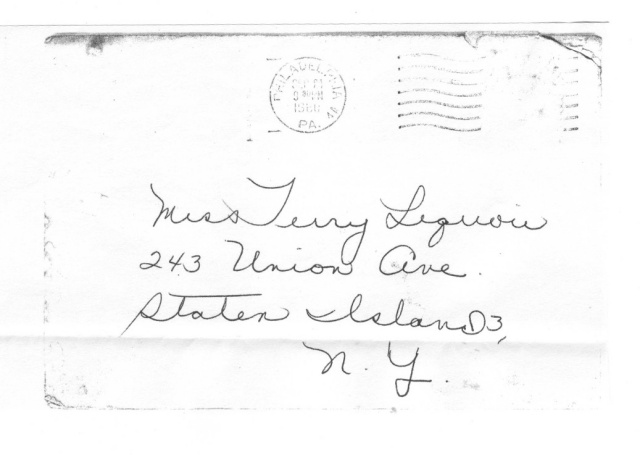 PHILADELPHIA
PA.
Miss Terry Liquori
243 Union Ave.
Staten Island 3,
N. Y.